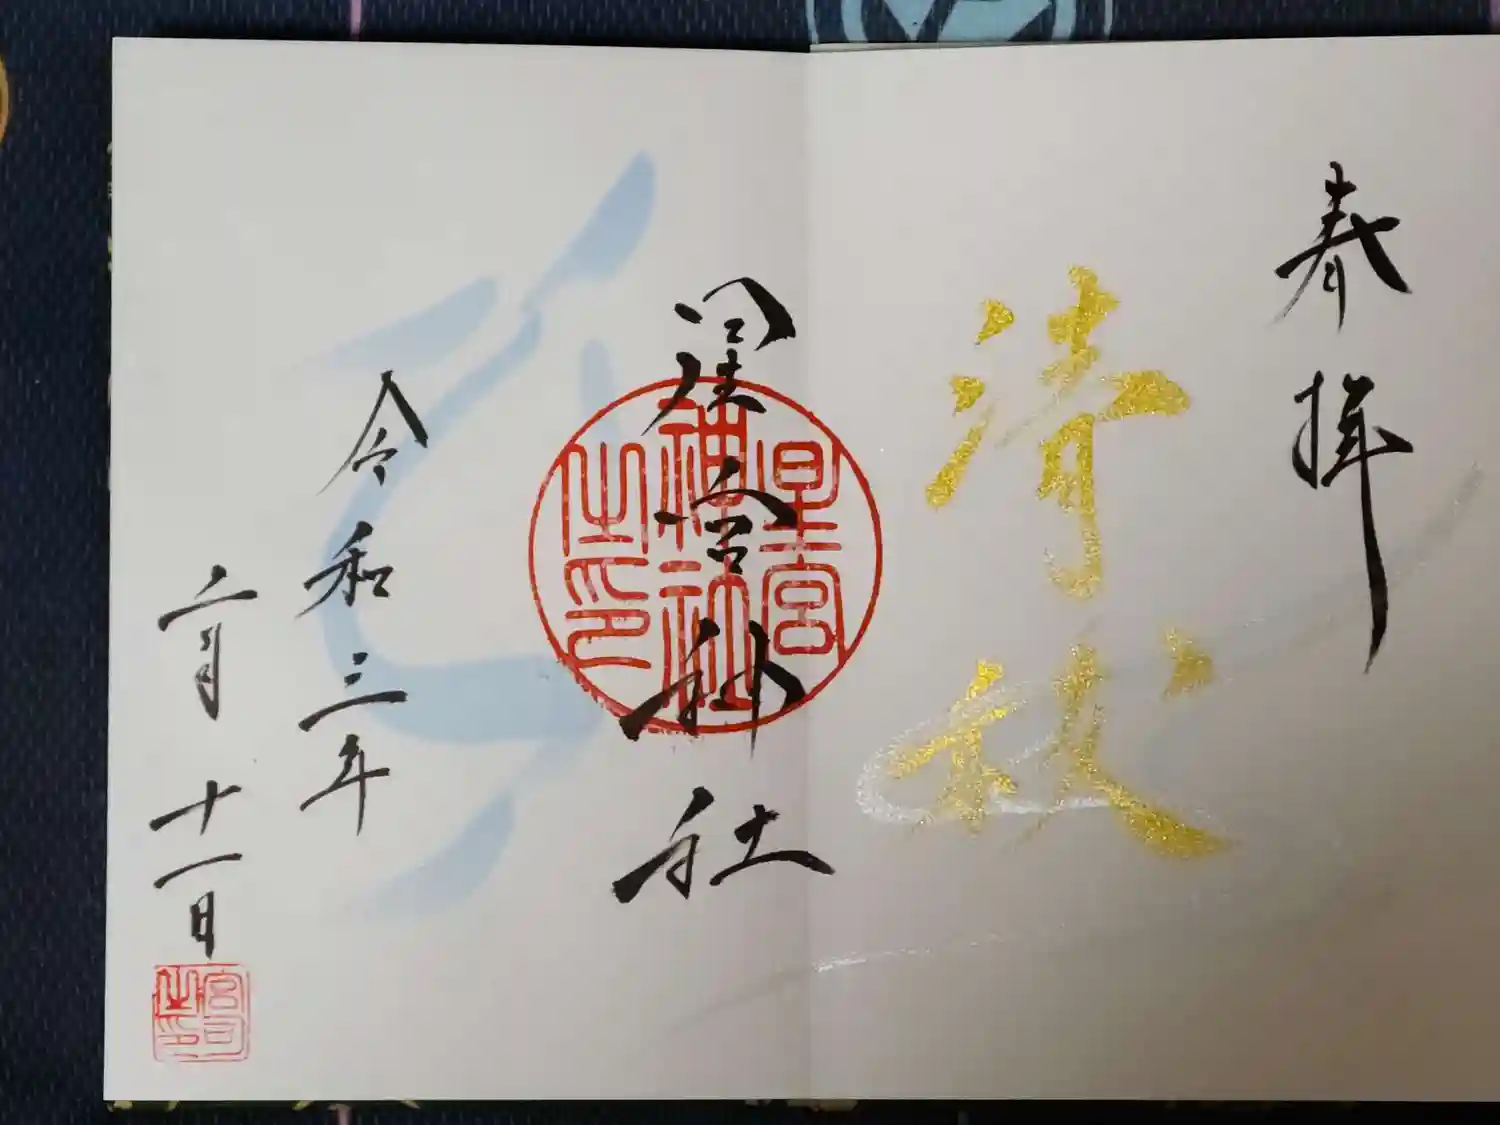 奉拝
清祓
星宮神社
星宮
神社
之印
令和三年
二月十一日
宮司
之印